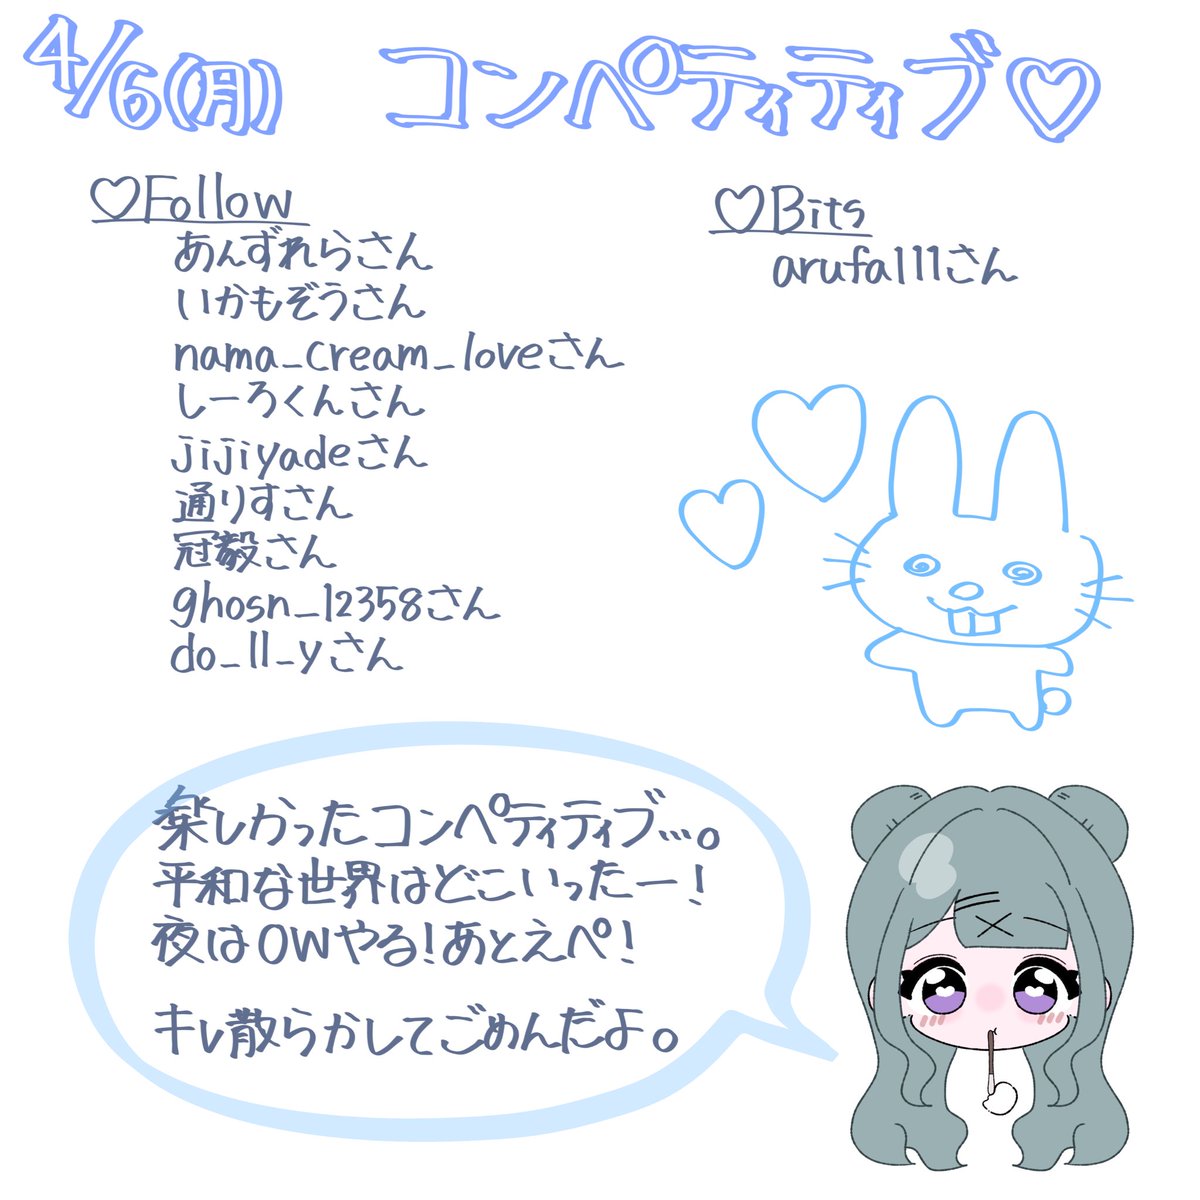 4/6(月) コンペティティブ♡
♡Follow
あんずれらさん
いかもぞうさん
nama_cream_loveさん
しーろくんさん
jijiyadeさん
通りすさん
冠毅さん
ghosn_12358さん
do_ll_yさん
♡Bits
arufa111さん
楽しかったコンペティティブ…。
平和な世界はどこいったー!
夜はOWやる!あとえぺ!
キレ散らかしてごめんだよ。